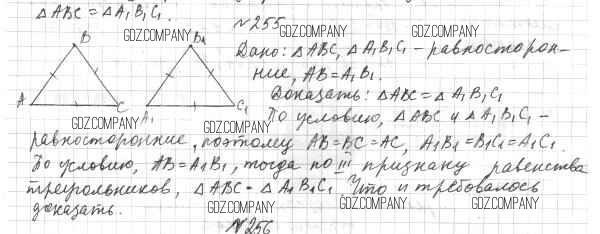 △ABC = △A₁B₁C₁.
№255
GDZ.COMPANY GDZ.COMPANY GDZ.COMPANY
B B₁
Дано: △ABC, △A₁B₁C₁ – равносторон-
ние, AB = A₁B₁.
Доказать: △ABC = △A₁B₁C₁
A C A₁ C₁
GDZ.COMPANY
По условию, △ABC и △A₁B₁C₁ –
GDZ.COMPANY GDZ.COMPANY GDZ.COMPANY
равносторонние, поэтому AB = BC = AC, A₁B₁ = B₁C₁ = A₁C₁.
По условию, AB = A₁B₁, тогда по III признаку равенства
треугольников, △ABC = △A₁B₁C₁. Что и требовалось
доказать.
GDZ.COMPANY GDZ.COMPANY GDZ.COMPANY
№256